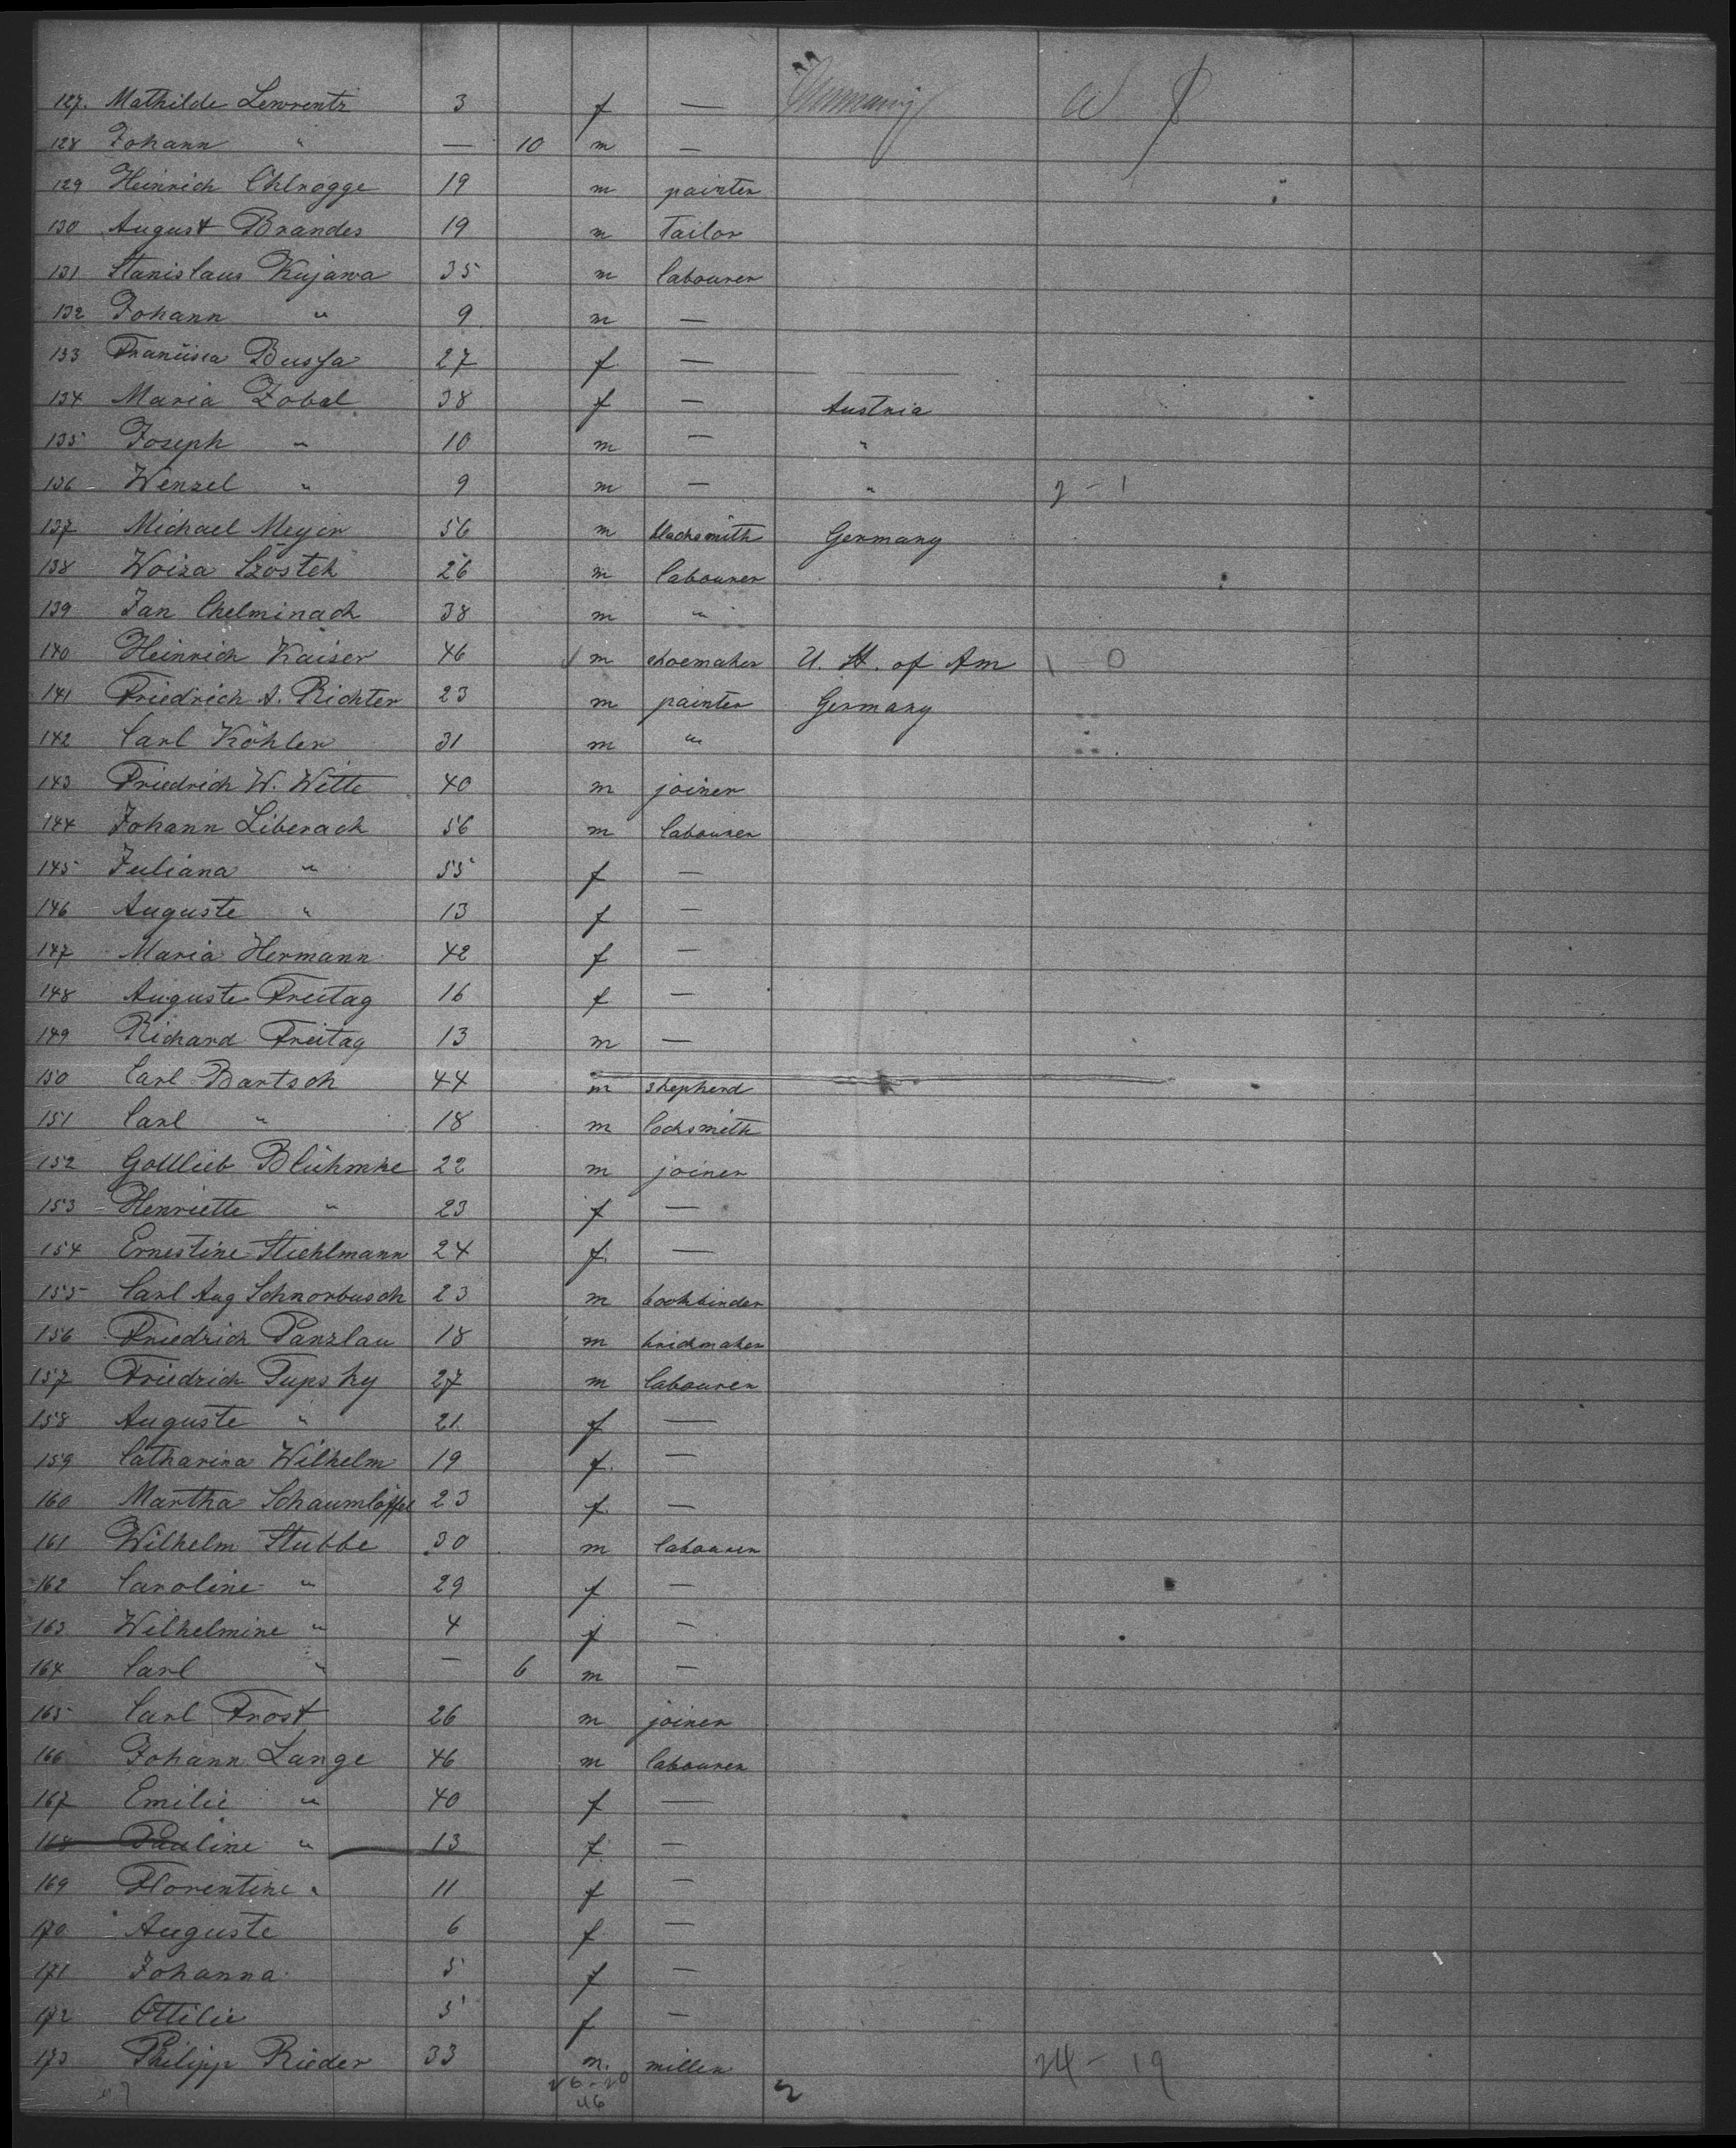 127. Mathilde Lewrentz 3 f — Germany
128 Johann " — 10 m —
129 Heinrich Ohlrogge 19 m painter
130 August Brandes 19 m Tailor
131 Stanislaus Kujawa 35 m labourer
132 Johann " 9 m —
133 Franciska Bussa 27 f —
134 Maria Zobal 38 f — Austria
135 Joseph " 10 m — "
136 Wenzel " 9 m — " 2 - 1
137 Michael Meyer 56 m blacksmith Germany
138 Woiza Szostek 26 m labourer
139 Jan Chelminack 38 m "
140 Heinrich Kaiser 46 m shoemaker U. St. of Am 1 0
141 Friedrich A. Richter 23 m painter Germany
142 Carl Köhler 31 m "
143 Friedrich W. Witte 40 m joiner
144 Johann Liberack 56 m labourer
145 Juliana " 55 f —
146 Auguste " 13 f —
147 Maria Hermann 42 f —
148 Auguste Freitag 16 f —
149 Richard Freitag 13 m —
150 Carl Bartsch 44 m shepherd
151 Carl " 18 m locksmith
152 Gottlieb Blühmke 22 m joiner
153 Henriette " 23 f —
154 Ernestine Stiehlmann 24 f. —
155 Carl Aug Schnorbusch 23 m bookbinder
156 Friedrich Panzlau 18 m brickmaker
157 Friedrich Tupsky 27 m labourer
158 Auguste " 21 f —
159 Catharina Wilhelm 19 f. —
160 Martha Schaumlöffel 23 f. —
161 Wilhelm Stubbe 30 m labourer
162 Caroline " 29 f —
163 Wilhelmine " 4 f —
164 Carl " — 6 m —
165 Carl Frost 26 m joiner
166 Johann Lange 46 m labourer
167 Emilie " 40 f —
168 Pauline " 13 f. —
169 Florentine " 11 f —
170 Auguste 6 f —
171 Johanna 5 f —
172 Ottilie 5 f —
173 Philipp Rieder 33 m. miller 24 - 19
26-20
46